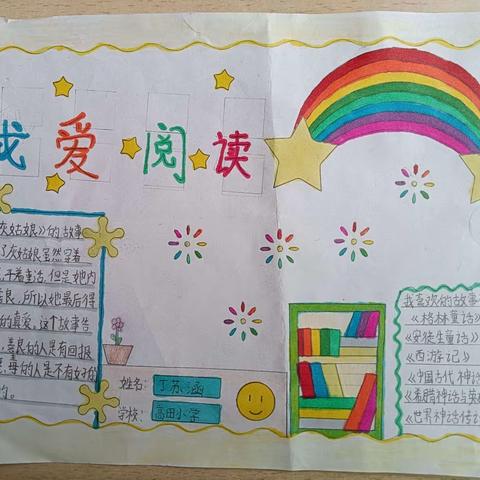 我爱阅读
灰姑娘》的故事
了灰姑娘虽然穿着
干着重活,但是她内
善良,所以她最后得
的真爱,这个故事告
,善良的人是有回报
,恶毒的人是不有好的
的。
姓名: 丁苏涵
学校: 高田小学
我喜欢的故事
《格林童话》
《安徒生童话》
《西游记》
《中国古代神话
《希腊神话与英
《世界神话传